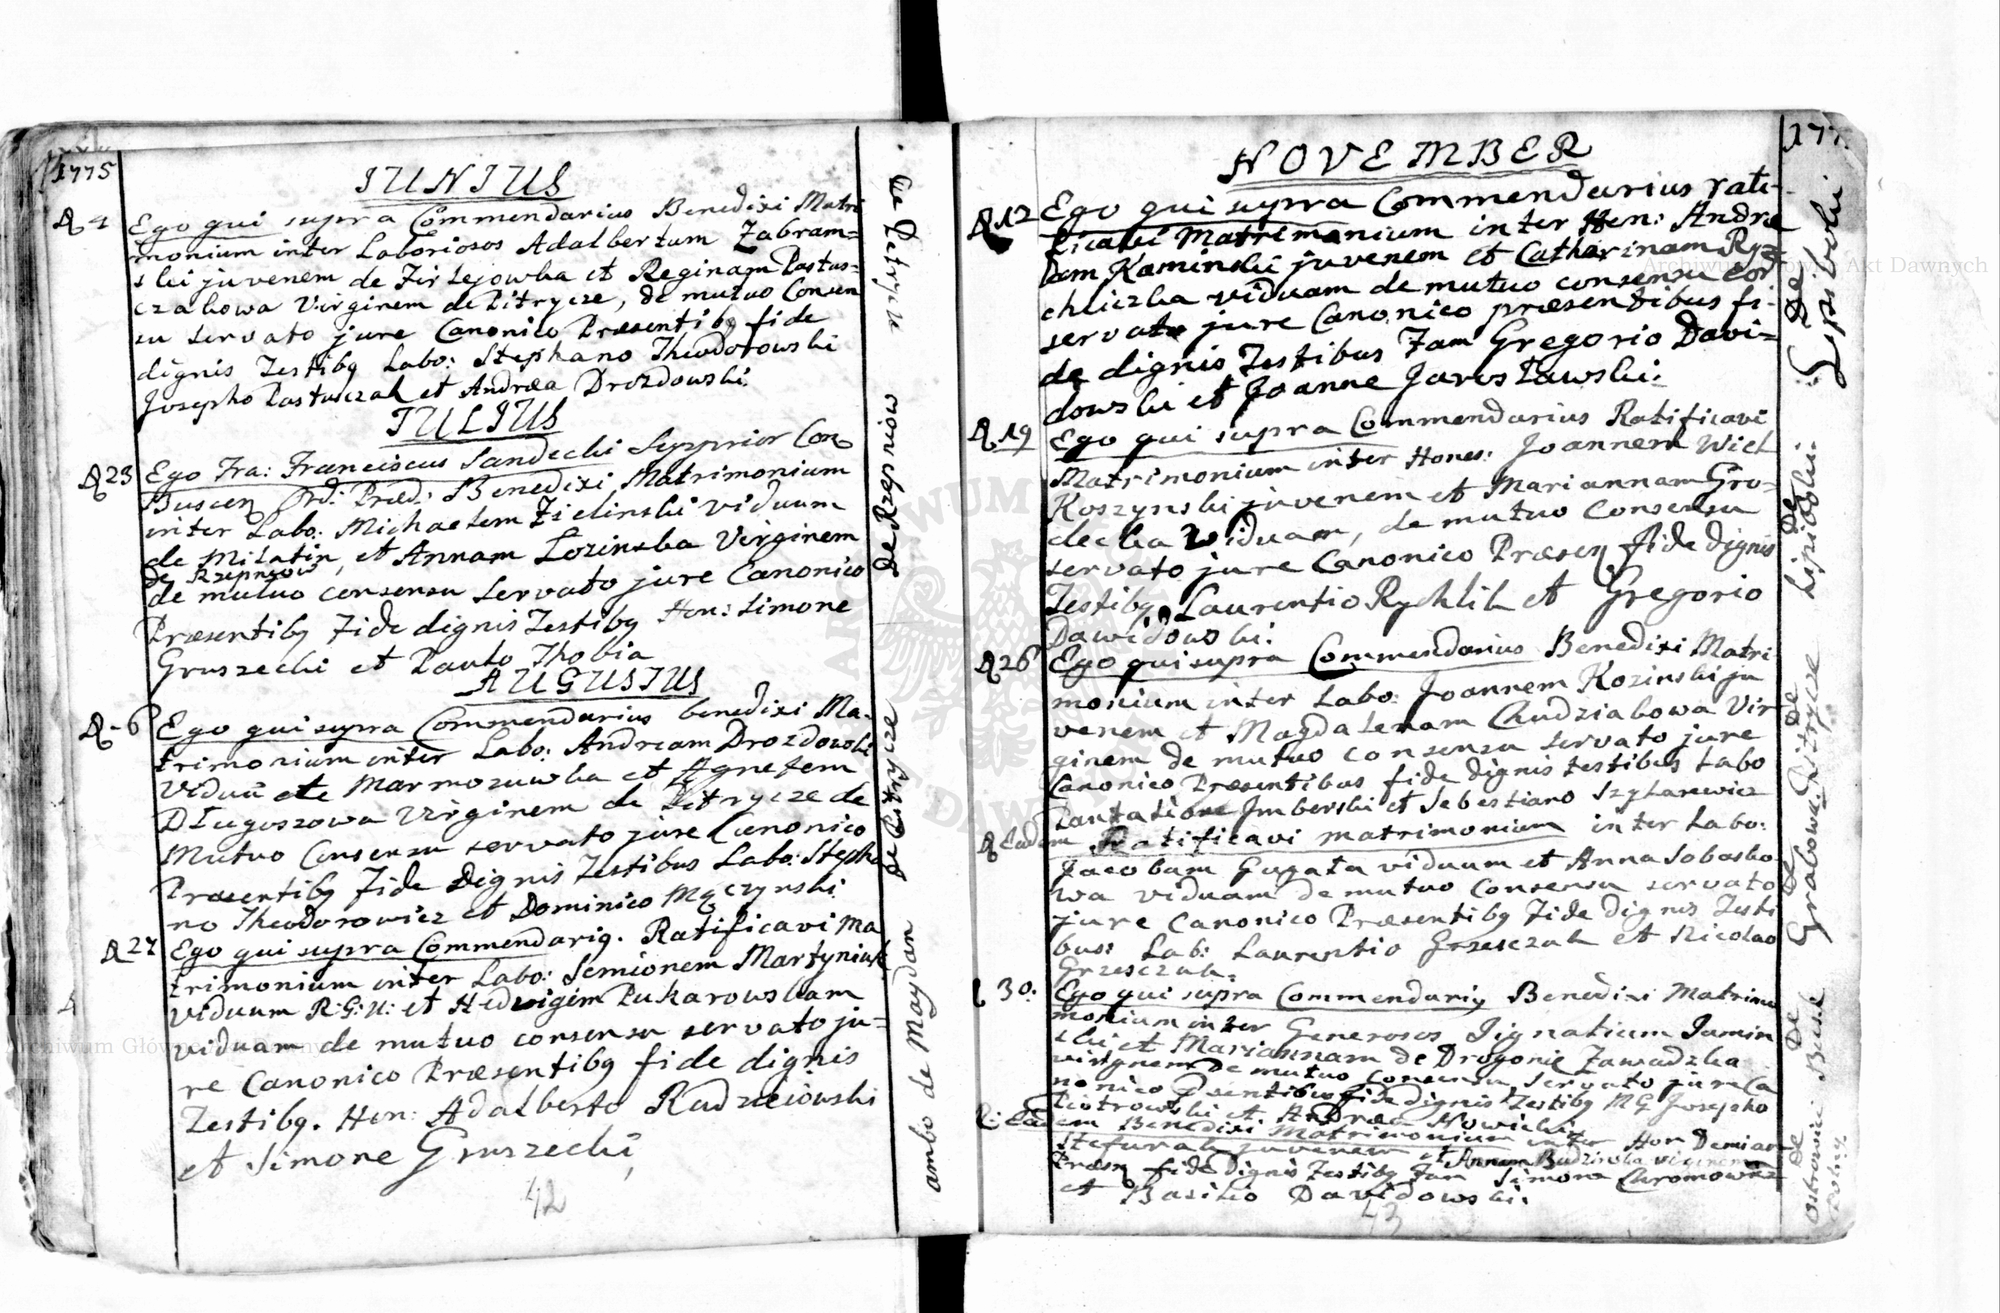 1775
JUNIUS
D 4 Ego qui supra Commendarius Benedixi Matri
monium inter Laboriosos Adalbertum Zabram=
ski juvenem de Firlejowka et Reginam Pastus=
czakowa Virginem de Pitrycze, de mutuo Consen
su servato jure Canonico Præsentibq fide
dignis Testibq Labo: Stephano Theodorowski
Josepho Pastusczak et Andræa Drozdowski.
JULIUS
D 23 Ego Fra: Franciscus Sandecki Supprior Con
Buscen Ord: Præd: Benedixi Matrimonium
inter Labo: Michaelem Zielinski viduum
de Milatin, et Annam Lozinska Virginem
de Rzepniow
de mutuo consensu servato jure Canonico
Præsentibq Fide dignis Testibq Hon: Simone
Gruszecki et Paulo Thobia
AUGUSTUS
D 6 Ego qui supra Commendarius benedixi Ma-
trimonium inter Labo: Andream Drozdowski
viduū de Marmozuwka et Agnetem
Długoszowa Virginem de Pitrycze de
Mutuo Consensu servato jure Canonico
Præsentibq Fide Dignis Testibus Labo: Stepha
no Theodorowicz et Dominico Mączynski
D 27 Ego qui supra Commendariq. Ratificavi Ma
trimonium inter Labo: Semionem Martyniuk
viduum R: G: U: et Hedvigem Pukarowskam
viduam de mutuo consensu servato ju=
re Canonico Præsentibq fide dignis
Testibq. Hon: Adalberto Radzieiowski
et Simone Gruszecki
42
de Pitrycze
de Rzepniow
de Pitrycze
ambo de Maydan
177
NOVEMBER
D 12 Ego qui supra Commendarius rati-
ficavi Matrimonium inter Hon: Andre
Kaminski juvenem et Catharinam Ry=
chliczka viduam de mutuo consensu
servato jure Canonico præsentibus fi-
de dignis Testibus Fam Gregorio Davi=
dowski et Joanne Jarosławski:
D 19 Ego qui supra Commendarius Ratificavi
Matrimonium inter Hones: Joannem Wiel
Koszynski juvenem et Mariannam Gro=
decka viduam, de mutuo Consensu
servato jure Canonico Præsen fide dignis
Testibq Laurentio Rychlik et Gregorio
Dawidowski:
D 26 Ego qui supra Commendarius Benedixi Matri
monium inter Labo: Joannem Kozinski ju
venem et Magdalenam Chudziakowa Vir
ginem de mutuo consensu servato jure
Canonico Præsentibus fide dignis testibus Labo
Pantalione Imberski et Sebestiano Szylarewicz
D Eadem Ratificavi matrimonium inter Labo:
Jacobum Gugała viduum et Anna Sobasko
wa viduam de mutuo Consensu servato
jure Canonico Præsentibq Fide Dignis Testi
bus: Lab: Laurentio Grzesczak et Nicolao
Grzesczak.
30. Ego qui supra Commendariq Benedixi Matrimo
monium inter Generosos Ignatium Jamin
ski et Mariannam de Drogonie Zawadzka
virginem De mutuo Consensu servato jure Ca
nonico Psentibus fide dignis Testibq MG Josepho
Piotrowski et Andræa Nowicki
D: Eadem Benedixi Matrimonium inter Hon Demian
Stefurak juvenem et Annam Budzinska virginem
Præsen fide Dignis Testibq Fam Simone Chromowicz
et Basilio Davidowski.
43
De Lipiboki
de Lipiboki
de Pitrycze
de Grabowa
De Busk
De Ostrowie